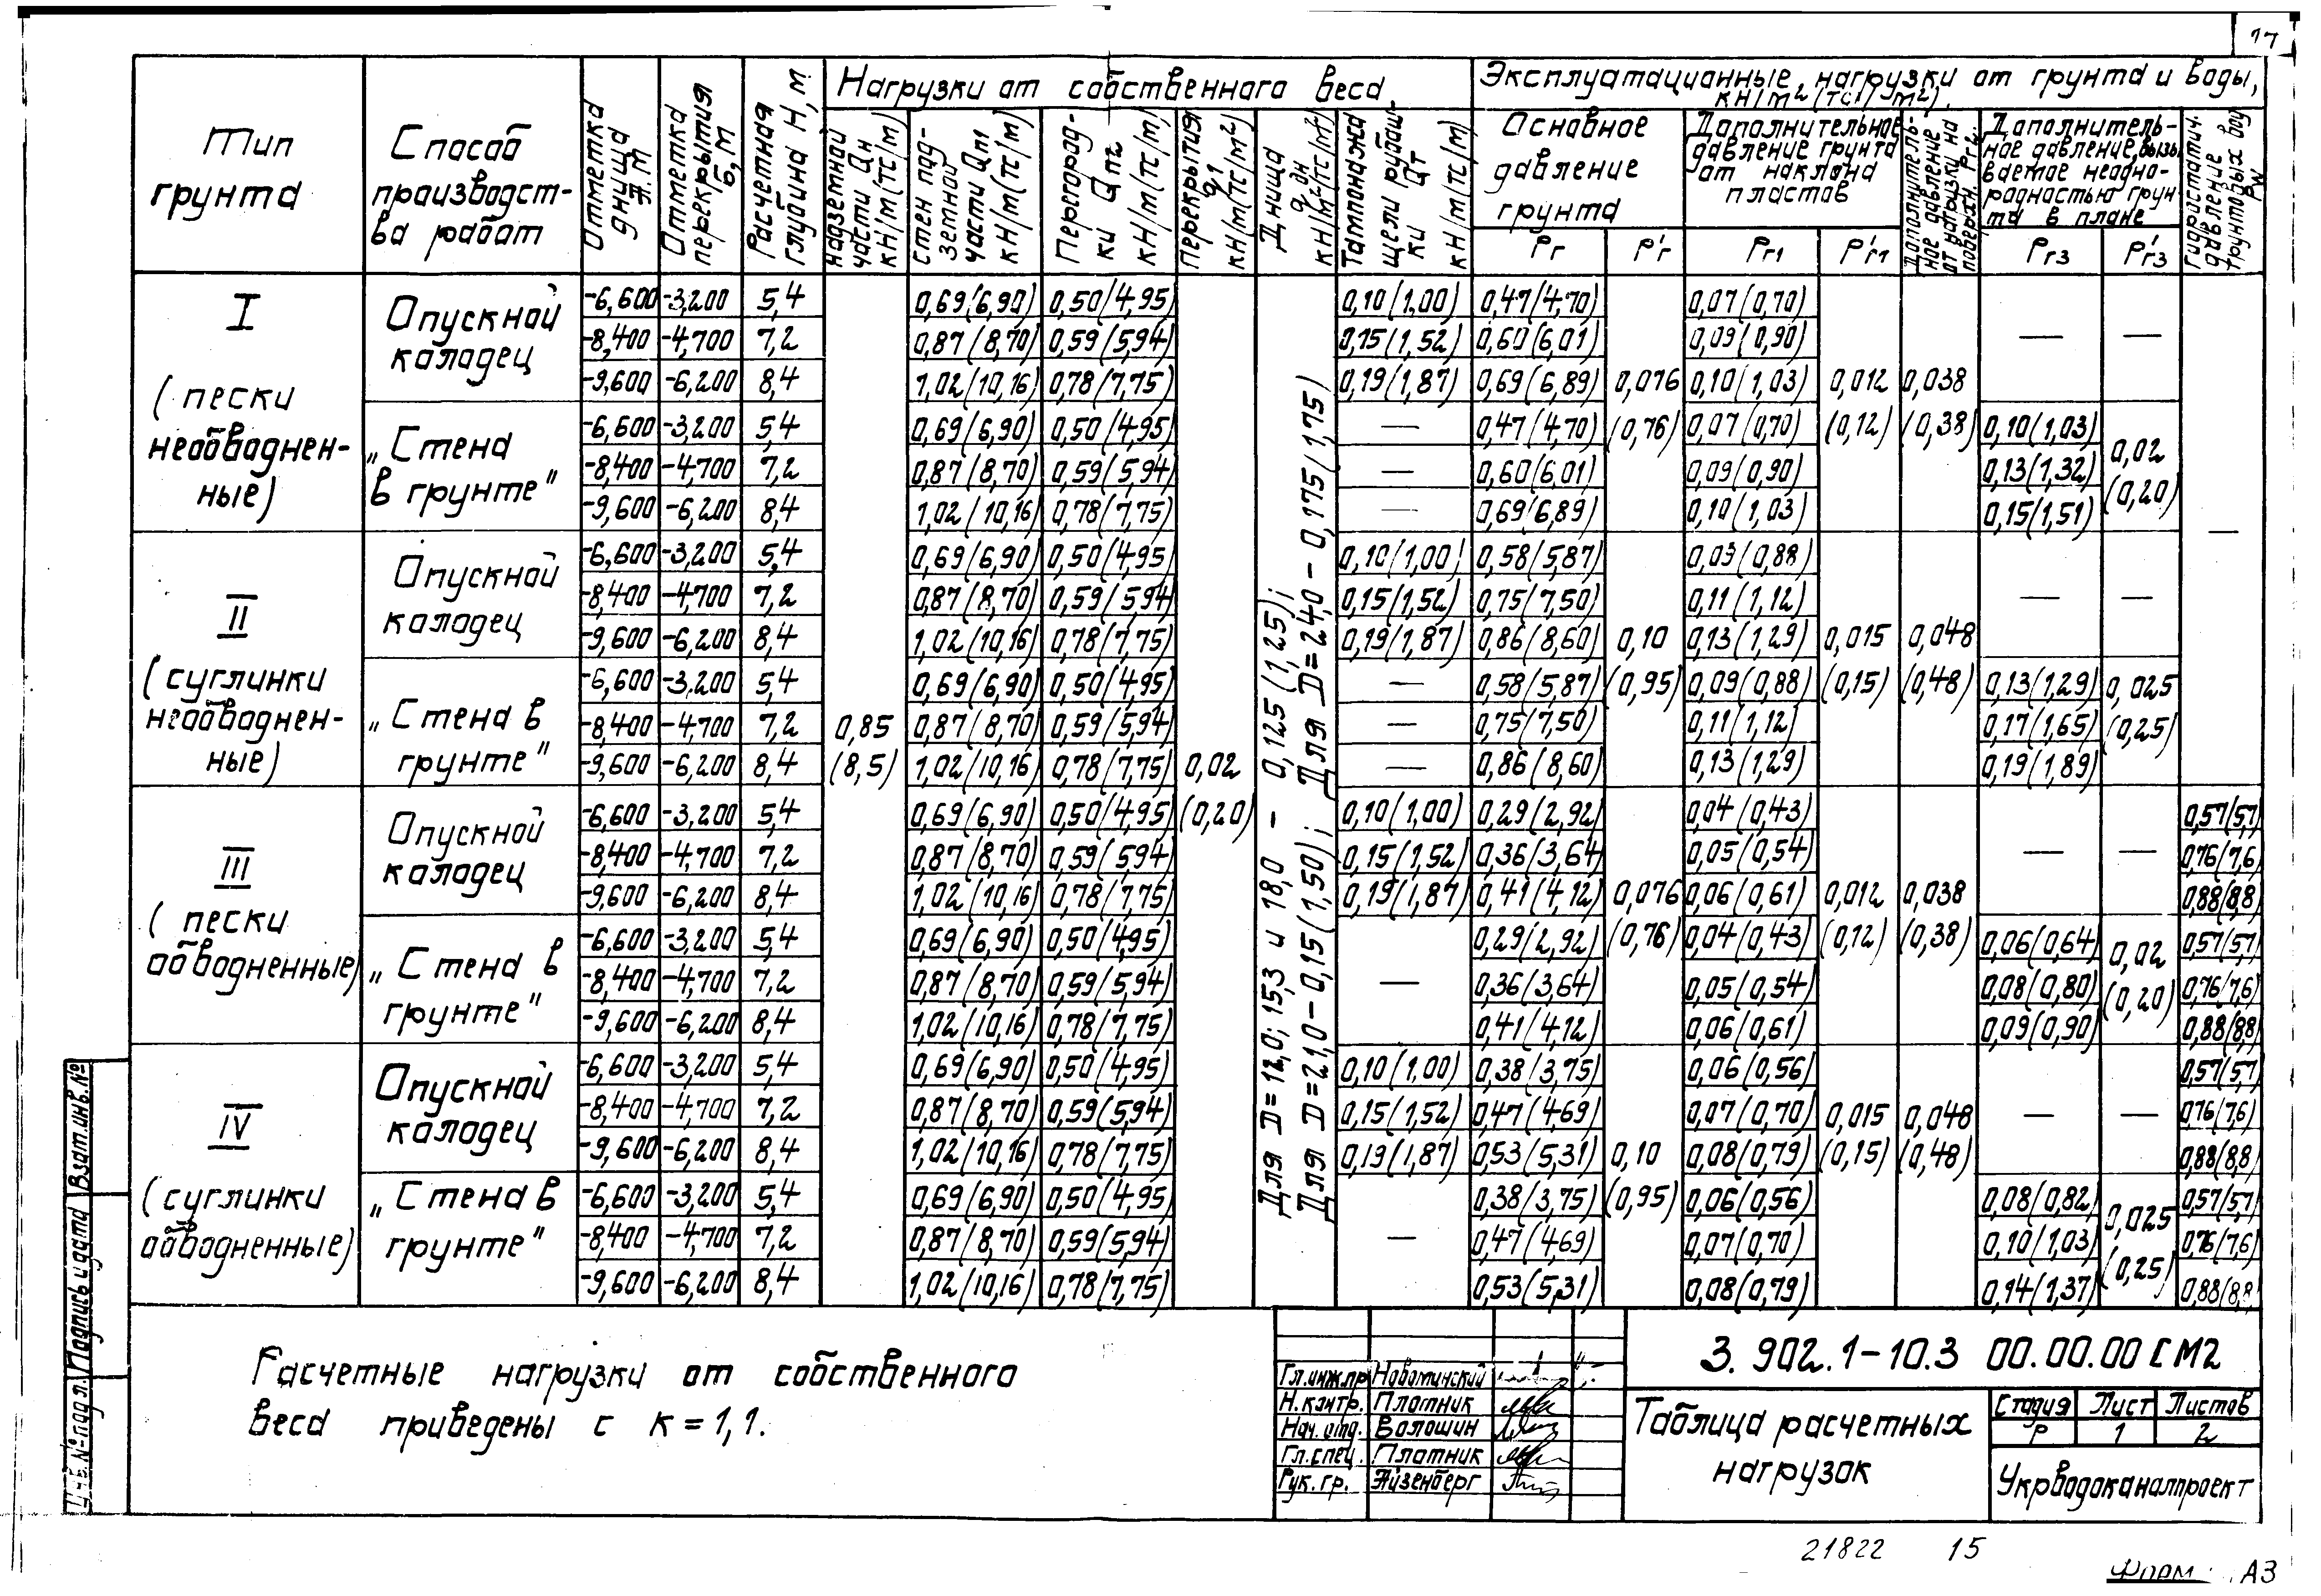 17
Тип грунта
Способ производст-ва работ
Отметка днища, м
Отметка перекрытия Б, м
Расчетная глубина Н, м
Нагрузки от собственного веса
надземной части Qн кН/м(тс/м)
стен под-земной части Qп1 кН/м(тс/м)
Перегород-ки Qп2 кН/м(тс/м)
Перекрытия q1 кН/м(тс/м²)
Днища qдн кН/м²(тс/м²)
Тампонажа щели рубаш-ки Qт кН/м(тс/м)
Эксплуатационные нагрузки от грунта и воды, кН/м2 (тс/м2).
Основное давление грунта
Рг Р'г
Дополнительное давление грунта от наклона пластов
Рг1 Р'г1
Дополнитель-ное давление от нагрузки на поверхн. Рг2
Дополнитель-ное давление, вызы-ваемое неодно-родностью грун-та в плане
Рг3 Р'г3
Гидростатич. давление грунтовых вод Рw
I
(пески необводнен-ные)
Опускной колодец
-6,600 -3,200 5,4 0,69(6,90) 0,50(4,95) 0,10(1,00) 0,47(4,70) 0,07(0,70)
-8,400 -4,700 7,2 0,87(8,70) 0,59(5,94) 0,15(1,52) 0,60(6,01) 0,09(0,90) — —
-9,600 -6,200 8,4 1,02(10,16) 0,78(7,75) 0,19(1,87) 0,69(6,89) 0,076 0,10(1,03) 0,012 0,038
„Стена в грунте"
-6,600 -3,200 5,4 0,69(6,90) 0,50(4,95) — 0,47(4,70) (0,76) 0,07(0,70) (0,12) (0,38) 0,10(1,03)
-8,400 -4,700 7,2 0,87(8,70) 0,59(5,94) — 0,60(6,01) 0,09(0,90) 0,13(1,32) 0,02
-9,600 -6,200 8,4 1,02(10,16) 0,78(7,75) — 0,69(6,89) 0,10(1,03) 0,15(1,51) (0,20) —
II
(суглинки необводнен-ные)
Опускной колодец
-6,600 -3,200 5,4 0,69(6,90) 0,50(4,95) 0,10(1,00) 0,58(5,87) 0,03(0,88)
-8,400 -4,700 7,2 0,87(8,70) 0,59(5,94) 0,15(1,52) 0,75(7,50) 0,11(1,12) — —
-9,600 -6,200 8,4 1,02(10,16) 0,78(7,75) 0,19(1,87) 0,86(8,60) 0,10 0,13(1,29) 0,015 0,048
„Стена в грунте"
-6,600 -3,200 5,4 0,69(6,90) 0,50(4,95) — 0,58(5,87) (0,95) 0,09(0,88) (0,15) (0,48) 0,13(1,29) 0,025
-8,400 -4,700 7,2 0,85 0,87(8,70) 0,59(5,94) — 0,75(7,50) 0,11(1,12) 0,17(1,65) (0,25)
-9,600 -6,200 8,4 (8,5) 1,02(10,16) 0,78(7,75) 0,02 — 0,86(8,60) 0,13(1,29) 0,19(1,89)
Для D=12,0; 15,3 и 18,0 - 0,125(1,25);
Для D=21,0-0,15(1,50); Для D=24,0-0,175(1,75)
III
(пески обводненные)
Опускной колодец
-6,600 -3,200 5,4 0,69(6,90) 0,50(4,95) (0,20) 0,10(1,00) 0,29(2,92) 0,04(0,43) 0,57(5,7)
-8,400 -4,700 7,2 0,87(8,70) 0,59(5,94) 0,15(1,52) 0,36(3,64) 0,05(0,54) — — 0,76(7,6)
-9,600 -6,200 8,4 1,02(10,16) 0,78(7,75) 0,19(1,87) 0,41(4,12) 0,076 0,06(0,61) 0,012 0,038 0,88(8,8)
„Стена в грунте"
-6,600 -3,200 5,4 0,69(6,90) 0,50(4,95) 0,29(2,92) (0,76) 0,04(0,43) (0,12) (0,38) 0,06(0,64) 0,02 0,57(5,7)
-8,400 -4,700 7,2 0,87(8,70) 0,59(5,94) — 0,36(3,64) 0,05(0,54) 0,08(0,80) (0,20) 0,76(7,6)
-9,600 -6,200 8,4 1,02(10,16) 0,78(7,75) 0,41(4,12) 0,06(0,61) 0,09(0,90) 0,88(8,8)
IV
(суглинки обводненные)
Опускной колодец
-6,600 -3,200 5,4 0,69(6,90) 0,50(4,95) 0,10(1,00) 0,38(3,75) 0,06(0,56) 0,57(5,7)
-8,400 -4,700 7,2 0,87(8,70) 0,59(5,94) 0,15(1,52) 0,47(4,69) 0,07(0,70) 0,015 0,048 — — 0,76(7,6)
-9,600 -6,200 8,4 1,02(10,16) 0,78(7,75) 0,19(1,87) 0,53(5,31) 0,10 0,08(0,79) (0,15) (0,48) 0,88(8,8)
„Стена в грунте"
-6,600 -3,200 5,4 0,69(6,90) 0,50(4,95) 0,38(3,75) (0,95) 0,06(0,56) 0,08(0,82) 0,025 0,57(5,7)
-8,400 -4,700 7,2 0,87(8,70) 0,59(5,94) — 0,47(4,69) 0,07(0,70) 0,10(1,03) (0,25) 0,76(7,6)
-9,600 -6,200 8,4 1,02(10,16) 0,78(7,75) 0,53(5,31) 0,08(0,79) 0,14(1,37) 0,88(8,8)
Расчетные нагрузки от собственного
веса приведены с к=1,1.
Инв.№ подл. Подпись и дата Взам.инв.№
Гл.инж.пр Новоминский
Н.контр. Плотник
Нач.отд. Волошин
Гл.спец. Плотник
Рук.гр. Эйзенберг
3.902.1-10.3 00.00.00 СМ2
Таблица расчетных
нагрузок
Стадия Лист Листов
Р 1 2
Укрводоканалпроект
21822 15
Форм А3